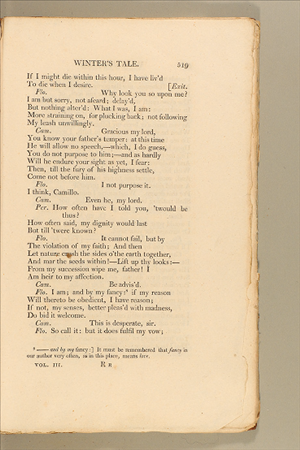 WINTER'S TALE. 519
If I might die within this hour, I have liv'd
To die when I desire. [Exit.
Flo. Why look you so upon me?
I am but sorry, not afeard; delay'd,
But nothing alter'd: What I was, I am:
More straining on, for plucking back; not following
My leash unwillingly.
Cam. Gracious my lord,
You know your father's temper: at this time
He will allow no speech,—which, I do guess,
You do not purpose to him;—and as hardly
Will he endure your sight as yet, I fear:
Then, till the fury of his highness settle,
Come not before him.
Flo. I not purpose it.
I think, Camillo.
Cam. Even he, my lord.
Per. How often have I told you, 'twould be
thus?
How often said, my dignity would last
But till 'twere known?
Flo. It cannot fail, but by
The violation of my faith; And then
Let nature crush the sides o'the earth together,
And mar the seeds within!—Lift up thy looks:—
From my succession wipe me, father! I
Am heir to my affection.
Cam. Be advis'd.
Flo. I am; and by my fancy:⁸ if my reason
Will thereto be obedient, I have reason;
If not, my senses, better pleas'd with madness,
Do bid it welcome.
Cam. This is desperate, sir.
Flo. So call it: but it does fulfil my vow;
⁸ —— and by my fancy:] It must be remembered that fancy in
our author very often, as in this place, means love.
VOL. III.